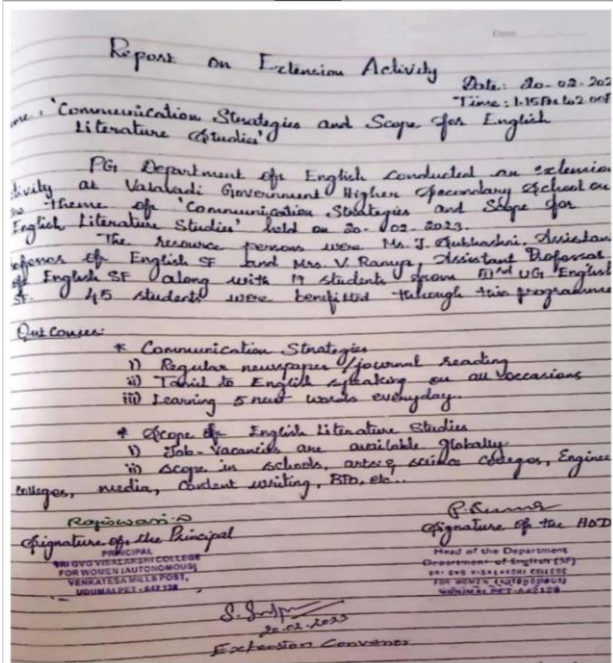 Report on Extension Activity
Date: 20-02-202
Time: 1.15PM to 2.00P
me: 'Communication Strategies and Scope for English
Literature Studies'
PG Department of English conducted an extension
tivity at Valavadi Government Higher Secondary School on
theme of 'Communication Strategies and Scope for
English Literature Studies' held on 20-02-2023.
The resource persons were Ms. J. Subhashni, Assistan
ofessor of English SF and Mrs. V. Ramya, Assistant Professor
of English SF along with students from UG English
SF. 45 students were benefitted through this programme
Outcomes:
* Communication Strategies
i) Regular newspaper / journal reading
ii) Tamil to English speaking on all occasions
iii) Learning 5 new words everyday.
* Scope of English Literature Studies
i) Job-Vacancies are available globally
ii) scope in schools, arts & science colleges, Enginee
colleges, media, content writing, BPO, etc..
Rajeswari.
Signature of the Principal
PRINCIPAL
SRI GVG VISALAKSHI COLLEGE
FOR WOMEN (AUTONOMOUS)
VENKATESA MILLS POST,
UDUMALPET - 642 128
Signature of the HOD
Head of the Department
Department of English (SF)
SRI GVG VISALAKSHI COLLEGE
FOR WOMEN (AUTONOMOUS)
UDUMALPET-642128
20-02-2023
Extension Convenor